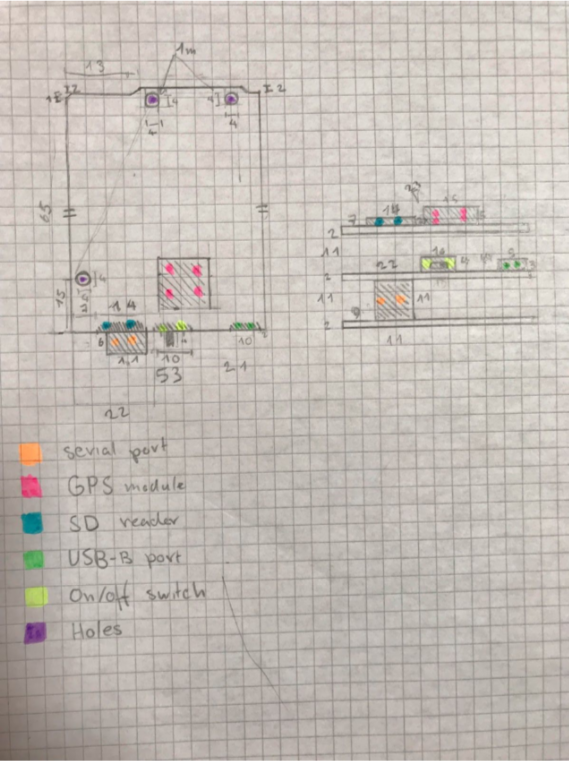 1m
13
2
2
4
4
4
65
15
4
14
6
11
10
53
10
21
22
15
14
7
2
11
16
22
2
11
11
2
11
serial port
GPS module
SD reader
USB-B port
On/off switch
Holes